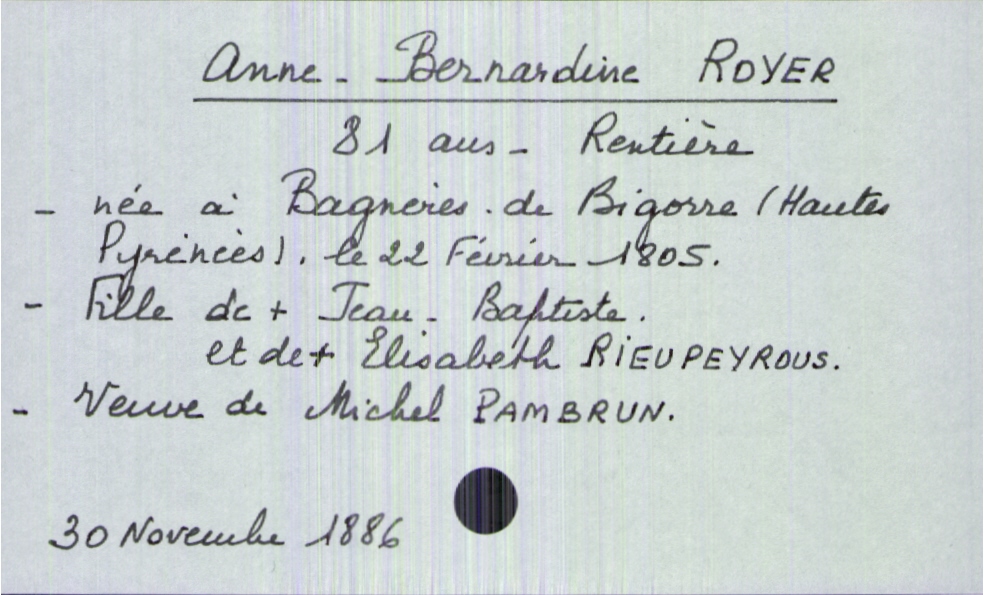 Anne - Bernardine ROYER
81 ans - Rentière
- née à Bagnères. de Bigorre (Hautes
Pyrénées). le 22 Février 1805.
- Fille de + Jean - Baptiste.
et de + Elisabeth RIEUPEYROUS.
- Veuve de Michel PAMBRUN.
30 Novembre 1886